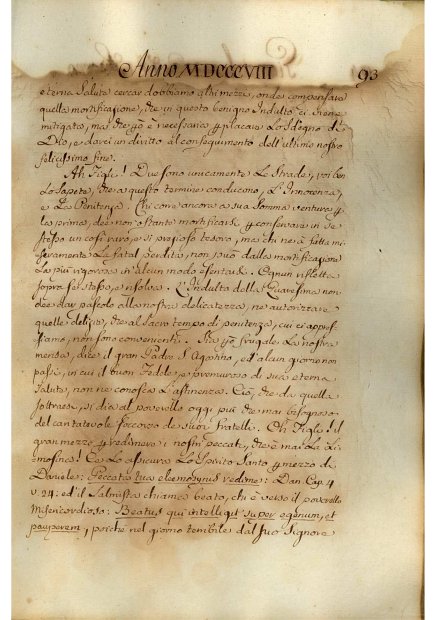 Anno MDCCCVIII 93
eterna Salute cercar dobbiamo altri mezzi, onde compensare
quella mortificazione, che in questo benigno Indulto ci viene
mitigata, ma che è necessaria placare Lo Sdegno di
Dio, e darci un diritto al conseguimento dell'ultimo nostro
felicissimo fine.
Ah Figli! Due sono unicamente Le Strade, voi ben
Lo Sapete, che a questo termine conducono, L'Innocenza,
e La Penitenza. Chi corre ancora a sua somma ventura
la prima, dee non ostante mortificarsi conservare in se
stesso un così raro, e sì prezioso tesoro, ma chi ne à fatta mi-
seramente La fatal perdita, non può dalla mortificazione
La più rigorosa in alcun modo esentarsi. Ognun rifletta
sopra se stesso, e risolva. L'Indulto della Quaresima non
dee dar pascolo alla nostra delicatezza, ne autorizzare
quelle delizie, che al sacro tempo di penitenza, cui ci appres-
siamo, non sono convenienti. Sia frugale La nostra
mensa, dice il gran Padre S. Agostino, ed alcun giorno non
passi, in cui il buon Fedele, e premuroso di sua eterna
salute, non ne conosca L'astinenza. Ciò, che da quella
sottraesi, si dia al poverello oggi più che mai bisognoso
del caritatevole soccorso de suoi fratelli. Oh Figli! Il
gran mezzo redimere i nostri peccati, che è mai La Li-
mosina! Ce Lo assicura Lo Spirito Santo mezzo di
Daniele: Peccata tua eleemosynis redime: Dan. Cap. 4
v. 24: ed il Salmista chiama beato, chi è verso il poverello
Misericordioso: Beatus qui intelligit super egenum, et
pauperem, poichè nel giorno terribile dal suo Signore